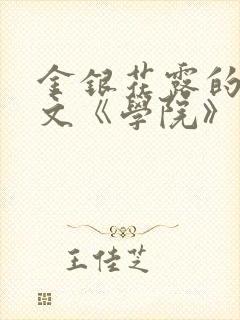 金銀花露的
文《學院》
王佳芝